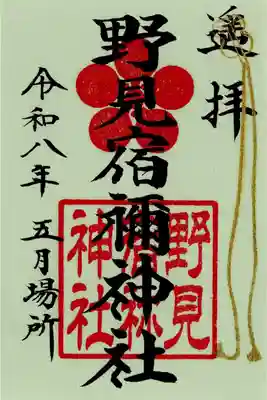 遥拝
野見宿禰神社
令和八年 五月場所
野見
宿祢
神社